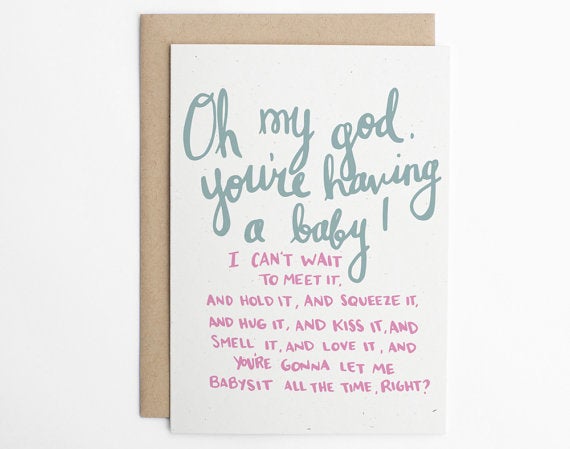 Oh my god.
you're having
a baby!
I CAN'T WAIT
TO MEET IT,
AND HOLD IT, AND SQUEEZE IT,
AND HUG IT, AND KISS IT, AND
SMELL IT, AND LOVE IT, AND
YOU'RE GONNA LET ME
BABYSIT ALL THE TIME, RIGHT?